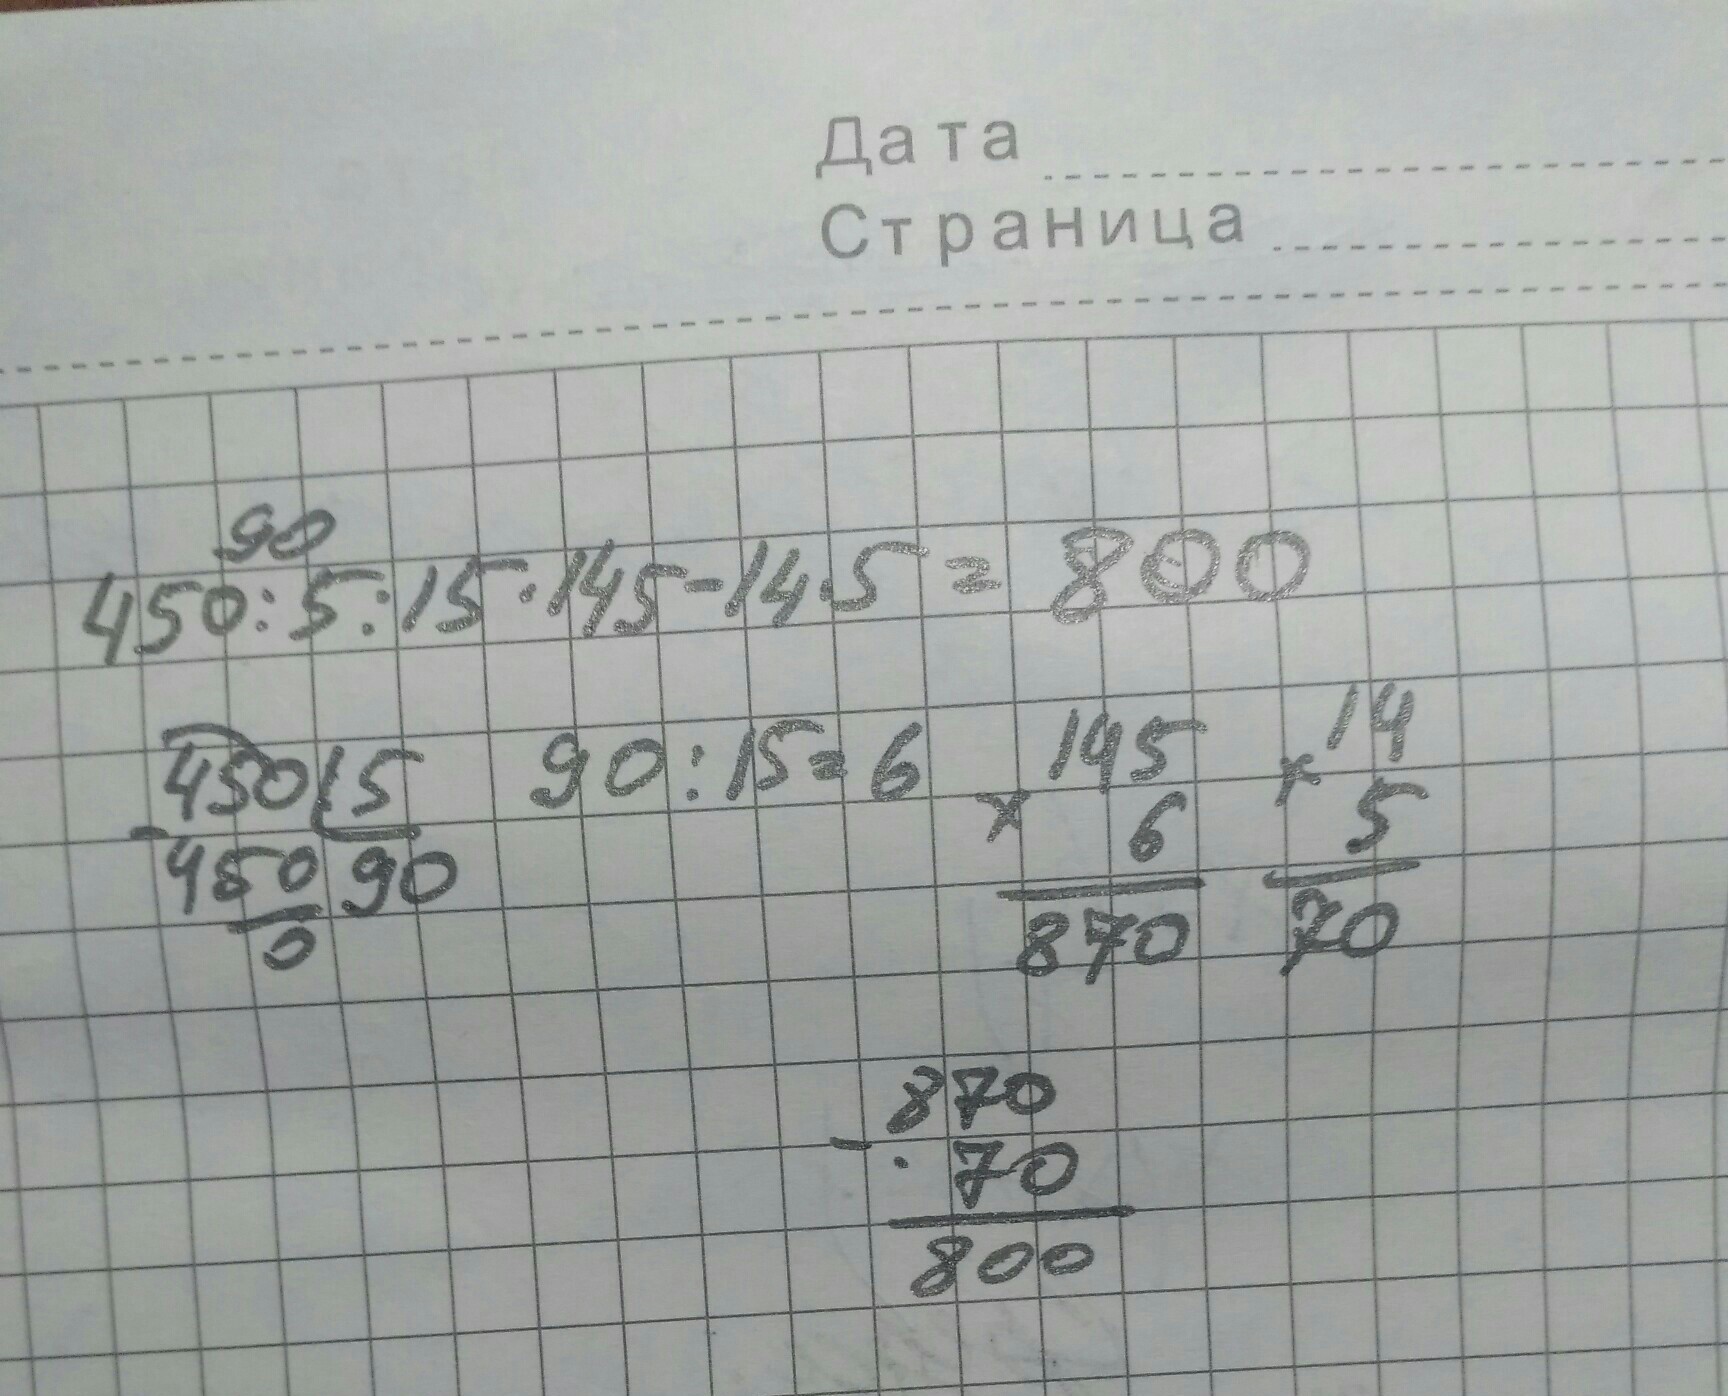 Дата
Страница
90
450:5:15·145-14·5=800
450 5 90:15=6 145 14
- × 6 × 5
450 90 870 70
0
870
- 70
800